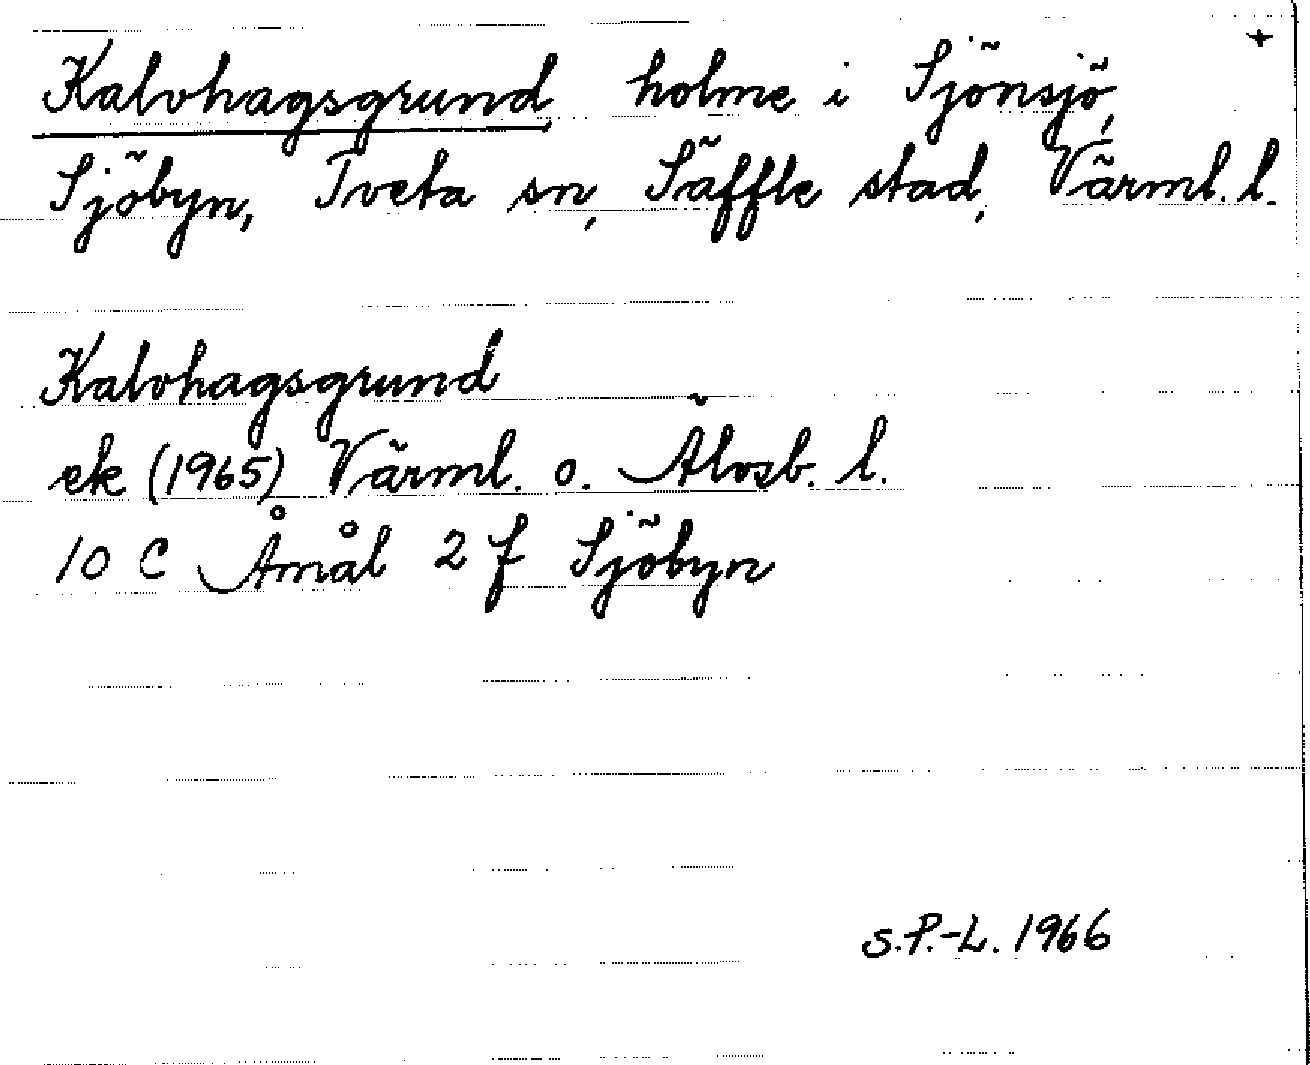 +
Kalvhagsgrund holme i Sjönsjö,
Sjöbyn, Tveta sn, Säffle stad, Värml. l.
Kalvhagsgrund
ek (1965) Värml. o. Älvsb. l.
10 C Åmål 2 f Sjöbyn
S.P.-L. 1966